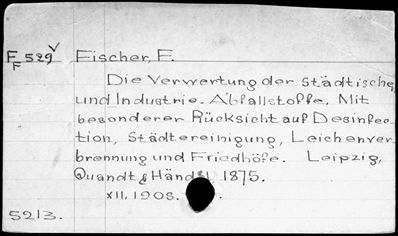 F 529 V Fischer, F.
F
Die Verwertung der Städtische
und Industrie-Abfallstoffe. Mit
besonderer Rücksicht auf Desinfec-
tion, Städtereinigung, Leichenver
brennung und Friedhöfe. Leipzig,
Quandt & Händel 1875.
XII, 1908.
5213.